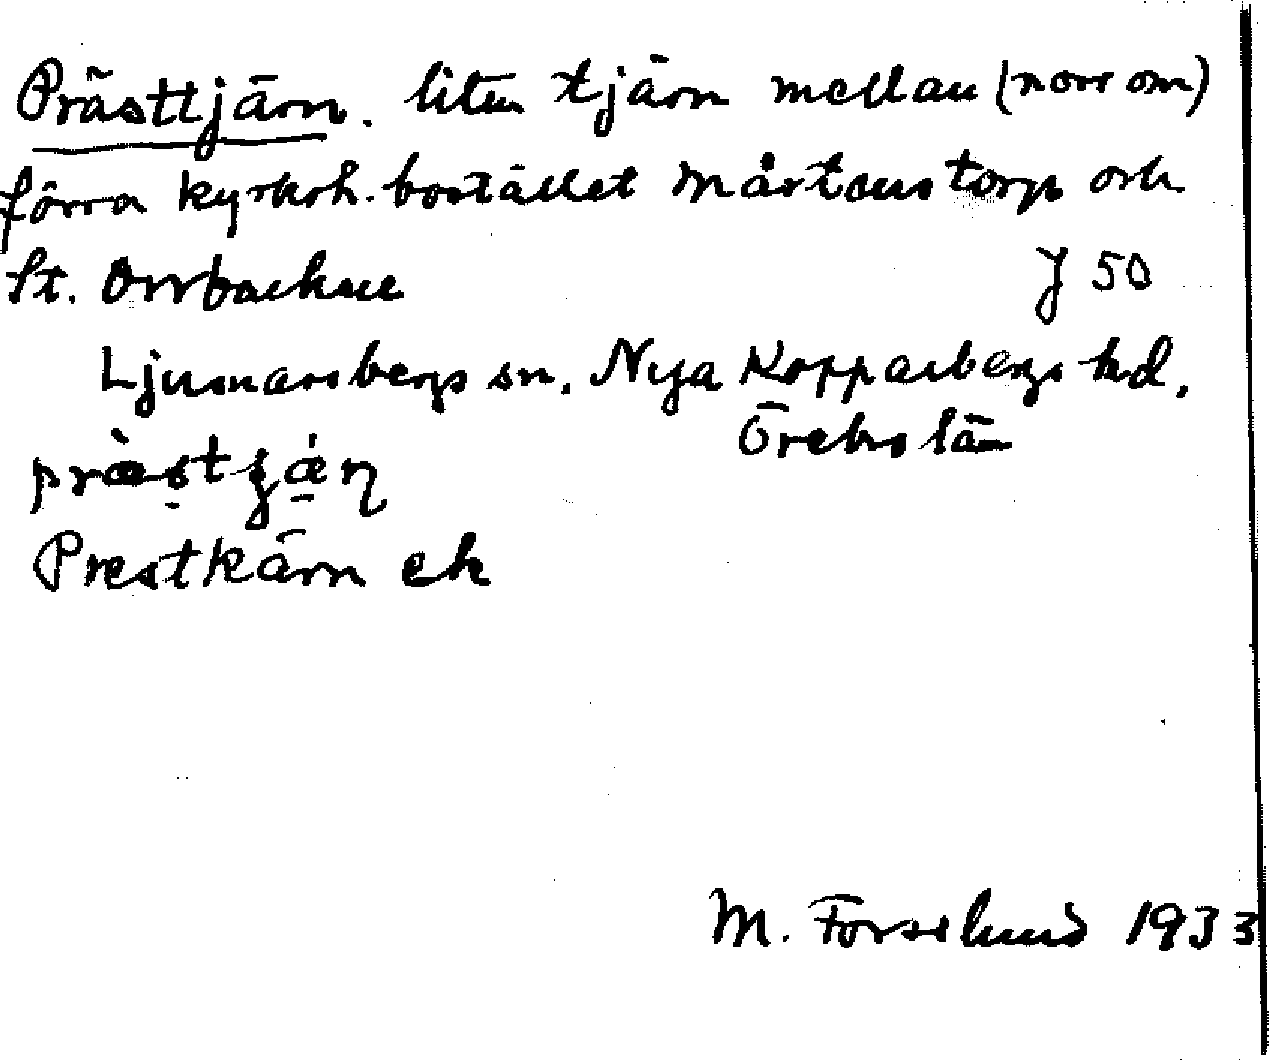 Prästtjärn. liten tjärn mellan (norr om)
förra kyrkoh. bostället Mårtens torp och
St. Orrbacken J 50
Ljusnarsbergs sn, Nya Kopparbergs hd,
Örebro län
Prestkärn ek
M. Forslund 1933